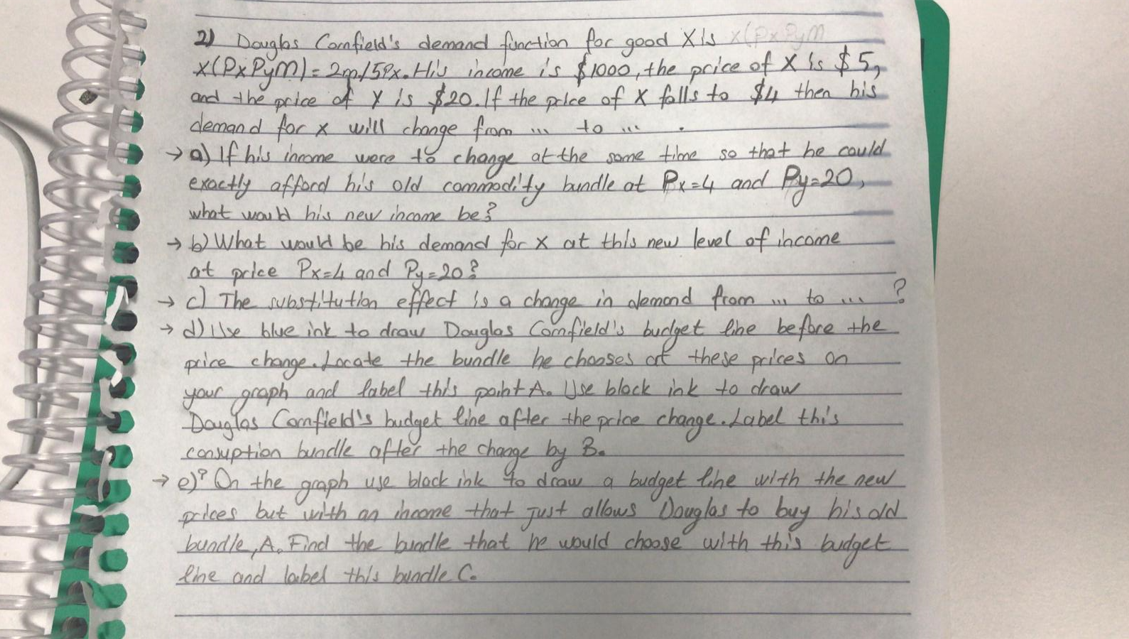 2) Douglas Cornfield's demand function for good X is x(PxPyM
x(PxPyM) = 2m/5Px. His income is $1000, the price of X is $5,
and the price of Y is $20. If the price of X falls to $4 then his
demand for x will change from ... to ... .
→ a) If his income were to change at the same time so that he could
exactly afford his old commodity bundle at Px=4 and Py=20,
what would his new income be?
→ b) What would be his demand for x at this new level of income
at price Px=4 and Py=20?
→ c) The substitution effect is a change in demand from ... to ... ?
→ d) Use blue ink to draw Douglas Cornfield's budget line before the
price change. Locate the bundle he chooses at these prices on
your graph and label this point A. Use black ink to draw
Douglas Cornfield's budget line after the price change. Label this
consuption bundle after the change by B.
→ e)? On the graph use black ink to draw a budget line with the new
prices but with an income that just allows Douglas to buy his old
bundle, A. Find the bundle that he would choose with this budget
line and label this bundle C.